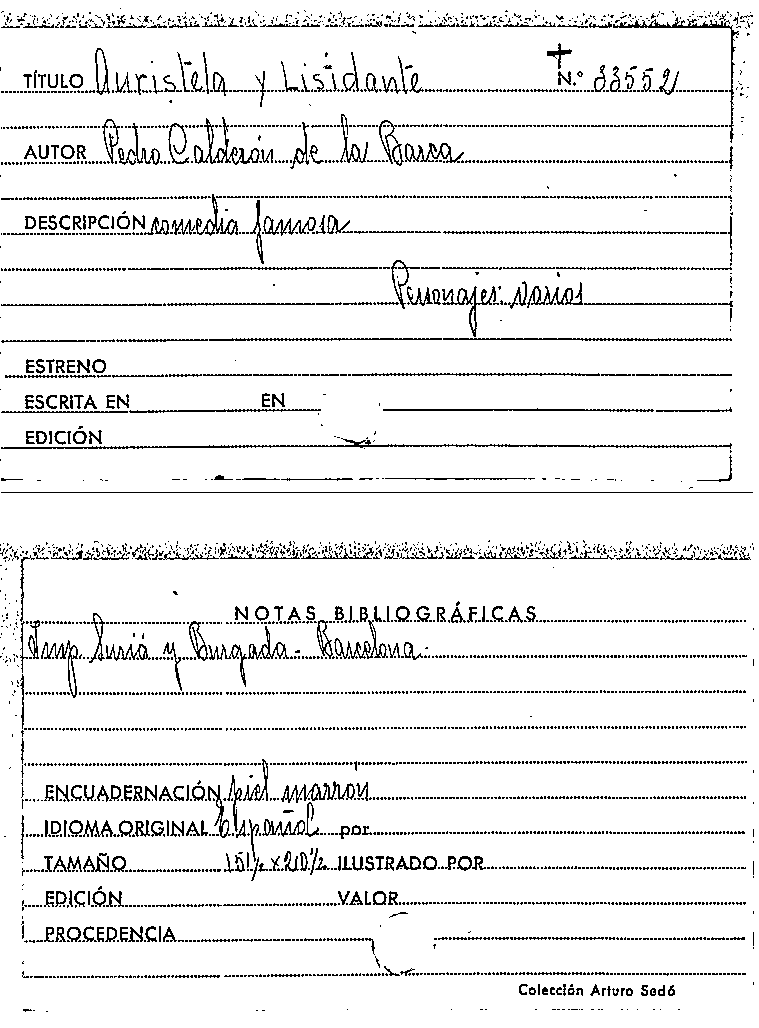 TÍTULO Auristela y Lisidante N.º 33552
AUTOR Pedro Calderón de la Barca
DESCRIPCIÓN comedia famosa
Personajes: varios
ESTRENO
ESCRITA EN EN
EDICIÓN
NOTAS BIBLIOGRÁFICAS
Imp Suriá y Burgada - Barcelona.
ENCUADERNACIÓN piel marron
IDIOMA ORIGINAL Español por
TAMAÑO 151½ x 210½ ILUSTRADO POR
EDICIÓN VALOR
PROCEDENCIA
Colección Arturo Sedó